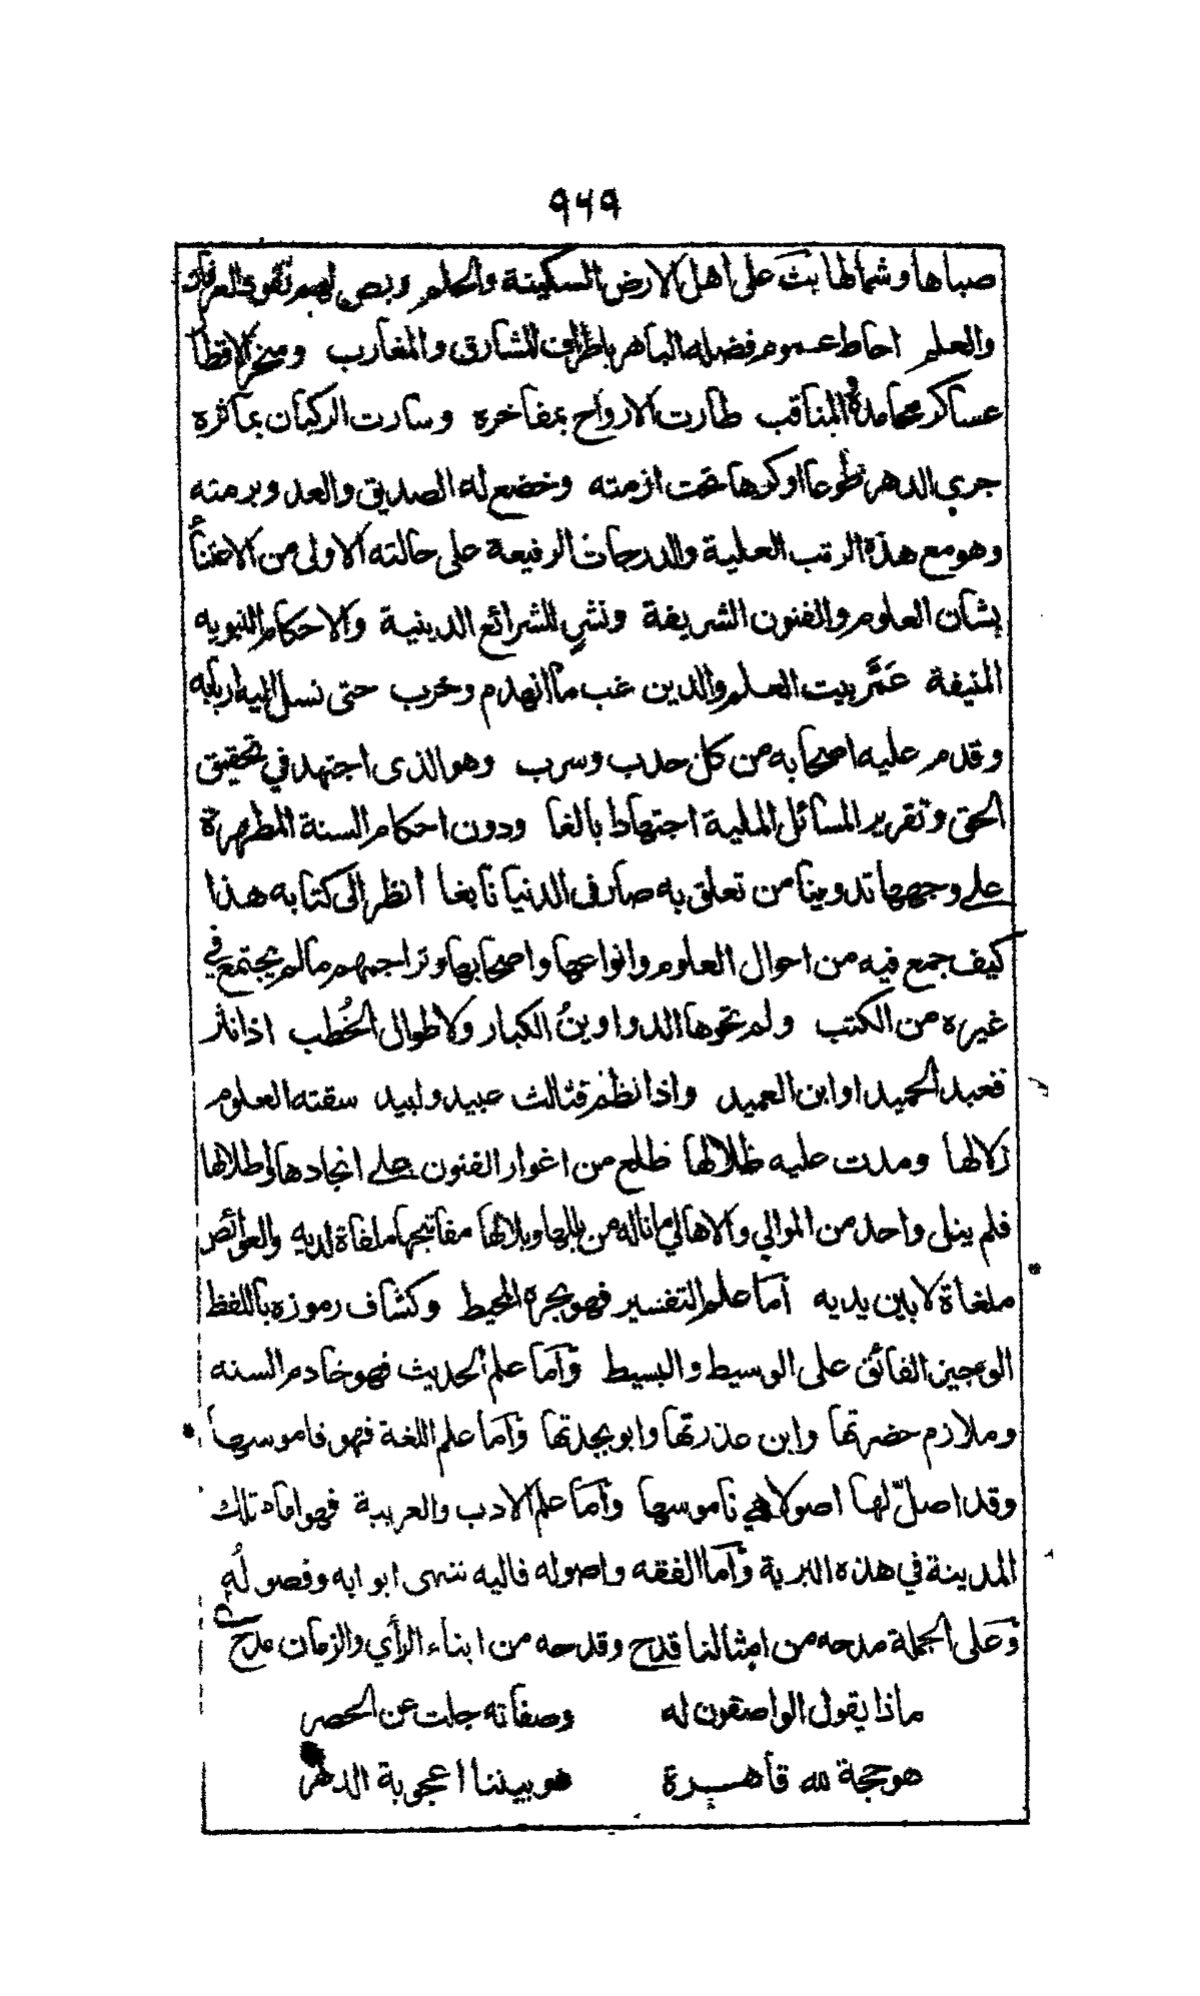 ٩٦٩
صباها وشمالها بث على اهل الارض السكينة والحلم وبص لهم نقود العرفان
والعلم احاط عموم فضله الباهر باطراف المشارق والمغارب وسخر الاقطا
عساكر محامده المناقب طارت الارواح بمفاخره وسارت الركبان بمآثره
جرى الدهر طوعا اوكرها تحت ازمته وخضع له الصديق والعدو برمته
وهو مع هذه الرتب العلية والدرجات الرفيعة على حالته الاولى من الاعتنأ
بشان العلوم والفنون الشريفة ونشر للشرائع الدينية والاحكام النبويه
المنيفة عَمَّر بيت العلم والدين غب ما انهدم وخرب حتى نسل اليه اربابه
وقدم عليه اصحابه من كل حدب وسرب وهو الذى اجتهد في تحقيق
الحق وتقرير المسائل الملية اجتهادا بالغا ودون احكام السنة المطهرة
على وجهها تدوينا من تعلق به صار فى الدنيا نابغا انظر الى كتابه هذا
كيف جمع فيه من احوال العلوم وانواعها واصحابها وتراجمهم ما لم يجتمع في
غيره من الكتب ولم تحوها الدواوينُ الكبار ولا طوال الخُطب اذا نثر
فعبد الحميد او ابن العميد واذا نظم فثالث عبيد ولبيد سقته العلوم
زلالها ومدت عليه ظلالها طلع من اغوار الفنون على انجادها واطلالها
فلم ينل واحد من الموالي والاهالي ما ناله من بللها وبلالها مفاتيحها ملقاة لديه والعوائص
ملغاة لا بين يديه أما علم التفسير فهو بحره المحيط وكشاف رموزه باللفظ
الوجيز الفائق على الوسيط والبسيط وأما علم الحديث فهو خادم السنه
وملازم حضرتها وابن عذرتها وابو بجدتها وأما علم اللغة فهو قاموسها
وقد اصلّ لها اصولا هي ناموسها وأما علم الادب والعربية فهو امام تلك
المدينة في هذه البرية وأما الفقه واصوله فاليه تنتهى ابوابه وفصولُه
وعلى الجملة مدحه من امثالنا قدح وقدحه من ابناء الرأي والزمان مدح
ماذا يقول الواصفون له وصفاته جلت عن الحصر
هو حجة لله قاهرة هو بيننا اعجوبة الدهر